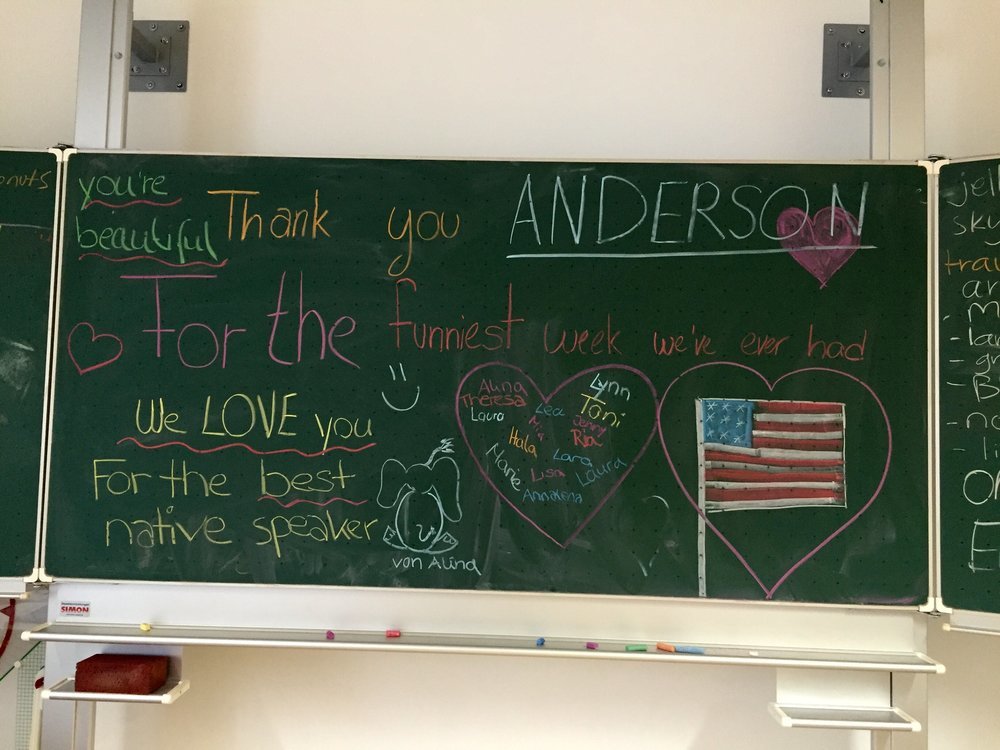 you're
beautiful
Thank you ANDERSON
For the funniest week we've ever had
We LOVE you
For the best
native speaker
von Alina
Alina
Theresa
Laura
Lea
Lynn
Toni
Jenny
Ria
Hala
Lara
Marie
Lisa
Laura
Annalena
SIMON